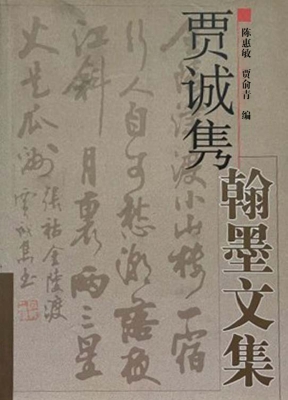 陈惠敏 贾俞青 编
贾诚隽
翰墨文集
金陵津渡小山楼一宿
行人自可愁潮落夜
江斜月裏两三星
火是瓜洲
张祜金陵渡